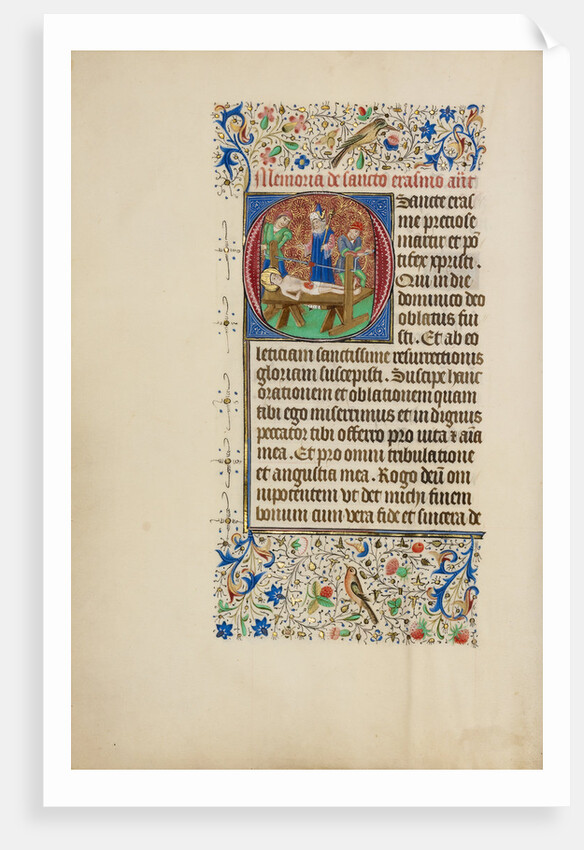 Memoria de sancto erasmo añt
Sancte eras
me preciose
martir et põ
tifex xpristi.
Qui in die
dominico deo
oblatus fui
sti. Et ab eo
leticiam sanctissime resurrectionis
gloriam suscepisti. Suscipe hanc
orationem et oblationem quam
tibi ego miserrimus et in dignus
peccator tibi offerro pro uita & aĩa
mea. Et pro omni tribulatione
et angustia mea. Rogo deũ om
nipotentem vt det michi finem
bonum cum vera fide et sincera de